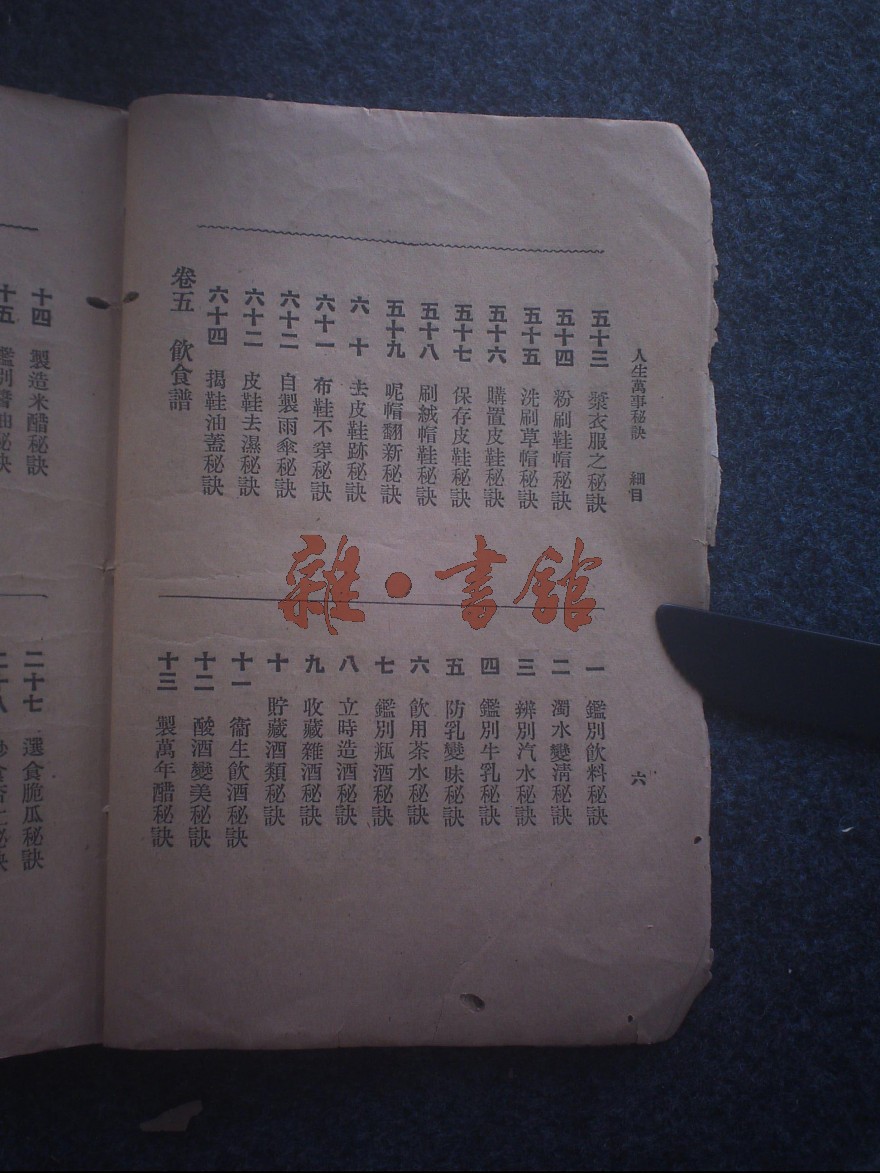 人生萬事秘訣 細目
五十三 漿衣服之秘訣
五十四 粉刷鞋帽秘訣
五十五 洗刷草帽秘訣
五十六 購置皮鞋秘訣
五十七 保存皮鞋秘訣
五十八 刷絨帽鞋秘訣
五十九 呢帽翻新秘訣
六十 去皮鞋跡秘訣
六十一 布鞋不穿秘訣
六十二 自製雨傘秘訣
六十二 皮鞋去濕秘訣
六十四 揭鞋油蓋秘訣
卷五 飲食譜
一 鑑別飲料秘訣
二 濁水變淸秘訣
三 辨別汽水秘訣
四 鑑別牛乳秘訣
五 防乳變味秘訣
六 飲用茶水秘訣
七 鑑別瓶酒秘訣
八 立時造酒秘訣
九 收藏雜酒秘訣
十 貯藏酒類秘訣
十一 衞生飲酒秘訣
十二 酸酒變美秘訣
十三 製萬年醋秘訣
六
十四 製造米醋秘訣
十五 鑑別醬油秘訣
二十七 選食脆瓜秘訣
雜·書館